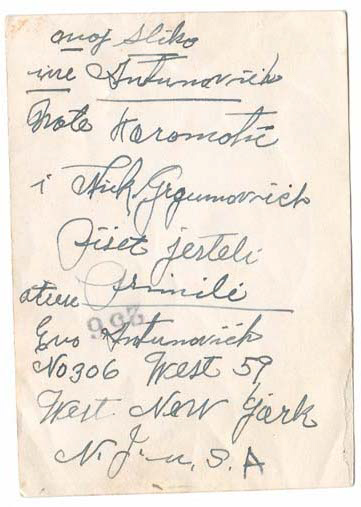 ovoj sliko
ive Antunovich
Mate Karomotić
i Nick Grgurnovrich
Pišet jerteli
primili
266
Evo Antunovich
No 306 West 59
West New York
N. J. U. S. A